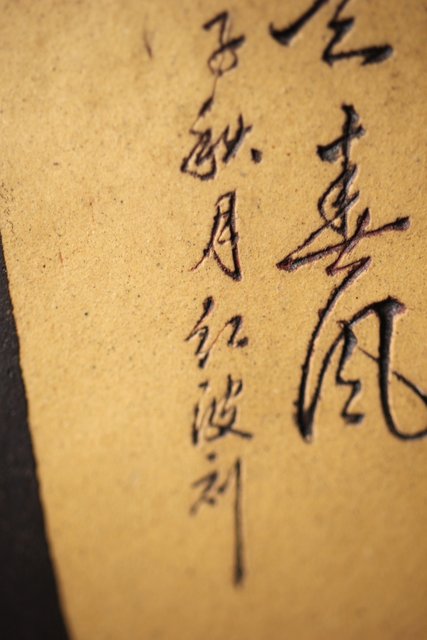 春风
子秋月红波刻